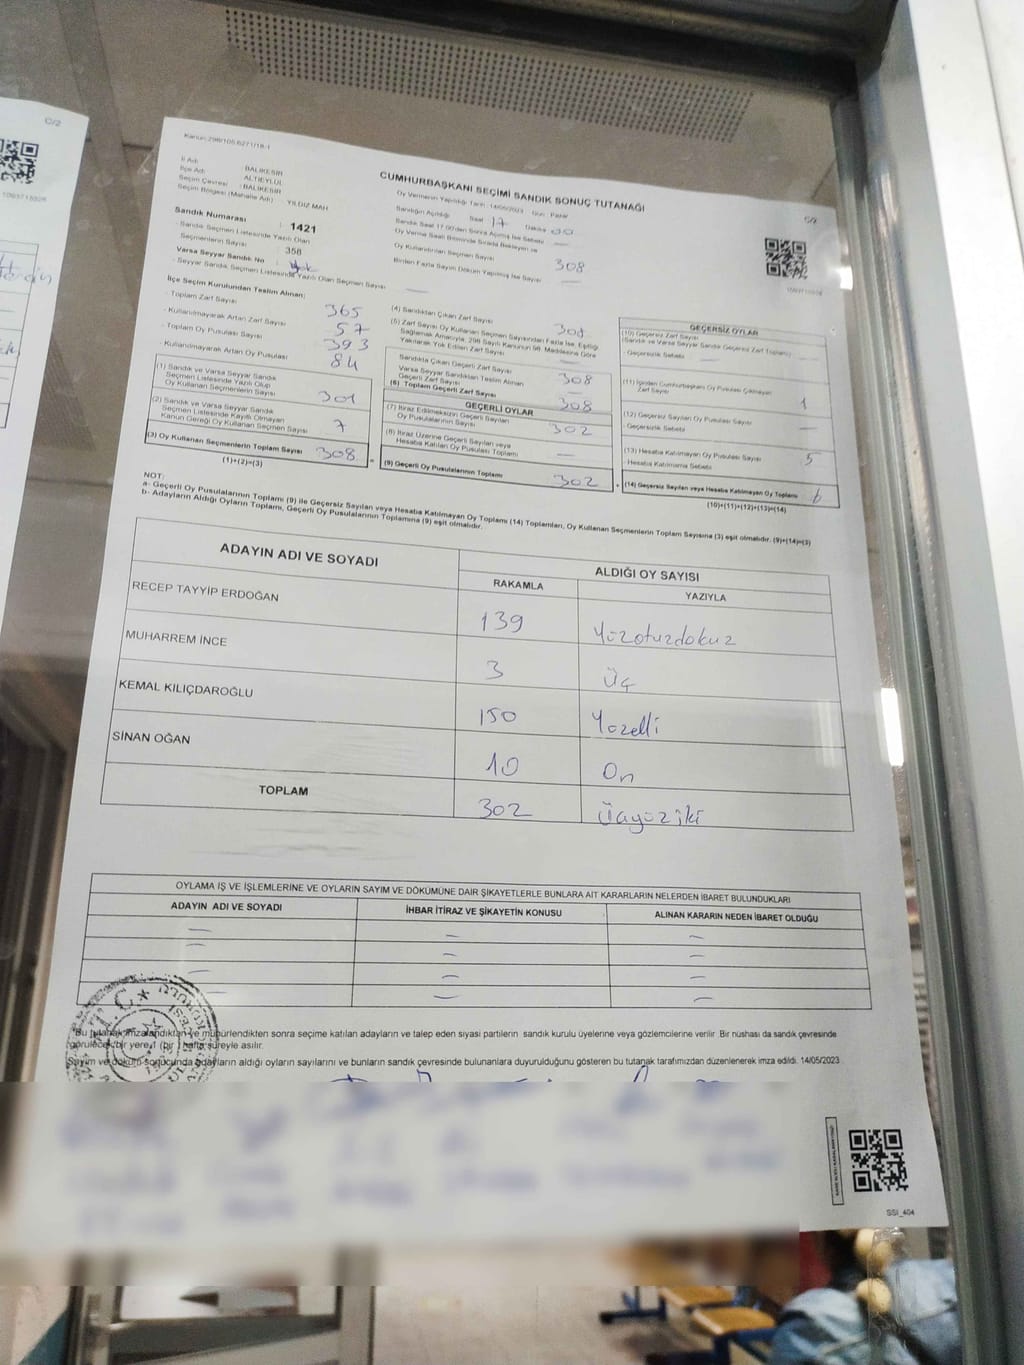 C/2
Kanun:298/105,6271/18-1
İl Adı : BALIKESİR
İlçe Adı : ALTIEYLÜL
Seçim Çevresi : BALIKESİR
Seçim Bölgesi (Mahalle Adı) : YILDIZ MAH
Sandık Numarası : 1421
- Sandık Seçmen Listesinde Yazılı Olan
Seçmenlerin Sayısı : 358
Varsa Seyyar Sandık No : Yok
- Seyyar Sandık Seçmen Listesinde Yazılı Olan Seçmen Sayısı —
CUMHURBAŞKANI SEÇİMİ SANDIK SONUÇ TUTANAĞI
Oy Vermenin Yapıldığı Tarih : 14/05/2023 Gün : Pazar
Sandığın Açıldığı Saat 17 Dakika 00
Sandık Saat 17.00'den Sonra Açılmış İse Sebebi —
Oy Verme Saati Bitiminde Sırada Bekleyen ve
Oy Kullandırılan Seçmen Sayısı 308
Birden Fazla Sayım Döküm Yapılmış İse Sayısı —
C/2
İlçe Seçim Kurulundan Teslim Alınan;
- Toplam Zarf Sayısı 365
- Kullanılmayarak Artan Zarf Sayısı 57
- Toplam Oy Pusulası Sayısı 393
- Kullanılmayarak Artan Oy Pusulası 84
(1) Sandık ve Varsa Seyyar Sandık
Seçmen Listesinde Yazılı Olup
Oy Kullanan Seçmenlerin Sayısı 301
(2) Sandık ve Varsa Seyyar Sandık
Seçmen Listesinde Kayıtlı Olmayan
Kanun Gereği Oy Kullanan Seçmen Sayısı 7
(3) Oy Kullanan Seçmenlerin Toplam Sayısı 308
(1)+(2)=(3)
(4) Sandıktan Çıkan Zarf Sayısı 308
(5) Zarf Sayısı Oy Kullanan Seçmen Sayısından Fazla İse, Eşitliği
Sağlamak Amacıyla, 298 Sayılı Kanunun 98. Maddesine Göre
Yakılarak Yok Edilen Zarf Sayısı —
Sandıkta Çıkan Geçerli Zarf Sayısı 308
Varsa Seyyar Sandıktan Teslim Alınan
Geçerli Zarf Sayısı —
(6) Toplam Geçerli Zarf Sayısı 308
GEÇERLİ OYLAR
(7) İtiraz Edilmeksizin Geçerli Sayılan
Oy Pusulalarının Sayısı 302
(8) İtiraz Üzerine Geçerli Sayılan veya
Hesaba Katılan Oy Pusulası Toplamı —
(9) Geçerli Oy Pusulalarının Toplamı 302
GEÇERSİZ OYLAR
(10) Geçersiz Zarf Sayısı
(Sandık ve Varsa Seyyar Sandık Geçersiz Zarf Toplamı) —
- Geçersizlik Sebebi —
(11) İçinden Cumhurbaşkanı Oy Pusulası Çıkmayan
Zarf Sayısı 1
(12) Geçersiz Sayılan Oy Pusulası Sayısı —
- Geçersizlik Sebebi
(13) Hesaba Katılmayan Oy Pusulası Sayısı 5
- Hesaba Katılmama Sebebi
(14) Geçersiz Sayılan veya Hesaba Katılmayan Oy Toplamı 6
(10)+(11)+(12)+(13)=(14)
NOT:
a- Geçerli Oy Pusulalarının Toplamı (9) ile Geçersiz Sayılan veya Hesaba Katılmayan Oy Toplamı (14) Toplamları, Oy Kullanan Seçmenlerin Toplam Sayısına (3) eşit olmalıdır. (9)+(14)=(3)
b- Adayların Aldığı Oyların Toplamı, Geçerli Oy Pusulalarının Toplamına (9) eşit olmalıdır.
ADAYIN ADI VE SOYADI ALDIĞI OY SAYISI
RAKAMLA YAZIYLA
RECEP TAYYİP ERDOĞAN 139 Yüzotuzdokuz
MUHARREM İNCE 3 Üç
KEMAL KILIÇDAROĞLU 150 Yüzelli
SİNAN OĞAN 10 On
TOPLAM 302 Üçyüz iki
OYLAMA İŞ VE İŞLEMLERİNE VE OYLARIN SAYIM VE DÖKÜMÜNE DAİR ŞİKAYETLERLE BUNLARA AİT KARARLARIN NELERDEN İBARET BULUNDUKLARI
ADAYIN ADI VE SOYADI İHBAR İTİRAZ VE ŞİKAYETİN KONUSU ALINAN KARARIN NEDEN İBARET OLDUĞU
— — —
— — —
— — —
— — —
Bu tutanak imzalandıktan ve mühürlendikten sonra seçime katılan adayların ve talep eden siyasi partilerin sandık kurulu üyelerine veya gözlemcilerine verilir. Bir nüshası da sandık çevresinde
görülecek bir yere 1 (bir) hafta süreyle asılır.
Sayım ve döküm sonucunda adayların aldığı oyların sayılarını ve bunların sandık çevresinde bulunanlara duyurulduğunu gösteren bu tutanak tarafımızdan düzenlenerek imza edildi. 14/05/2023
SSI_404